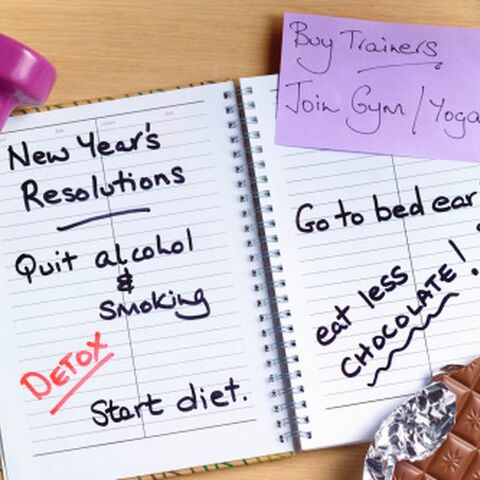 New Year's
Resolutions
Quit alcohol
&
smoking
DETOX
Start diet.
Buy Trainers
Join Gym / Yoga
Go to bed ear
eat less
CHOCOLATE!